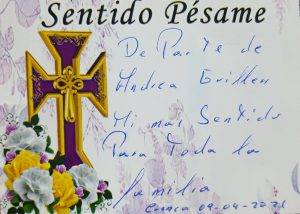 Sentido Pésame
De Parte de
Andrea Guillen
Mi mas Sentido
Para Toda la
familia
Cuenca 09-04-2021